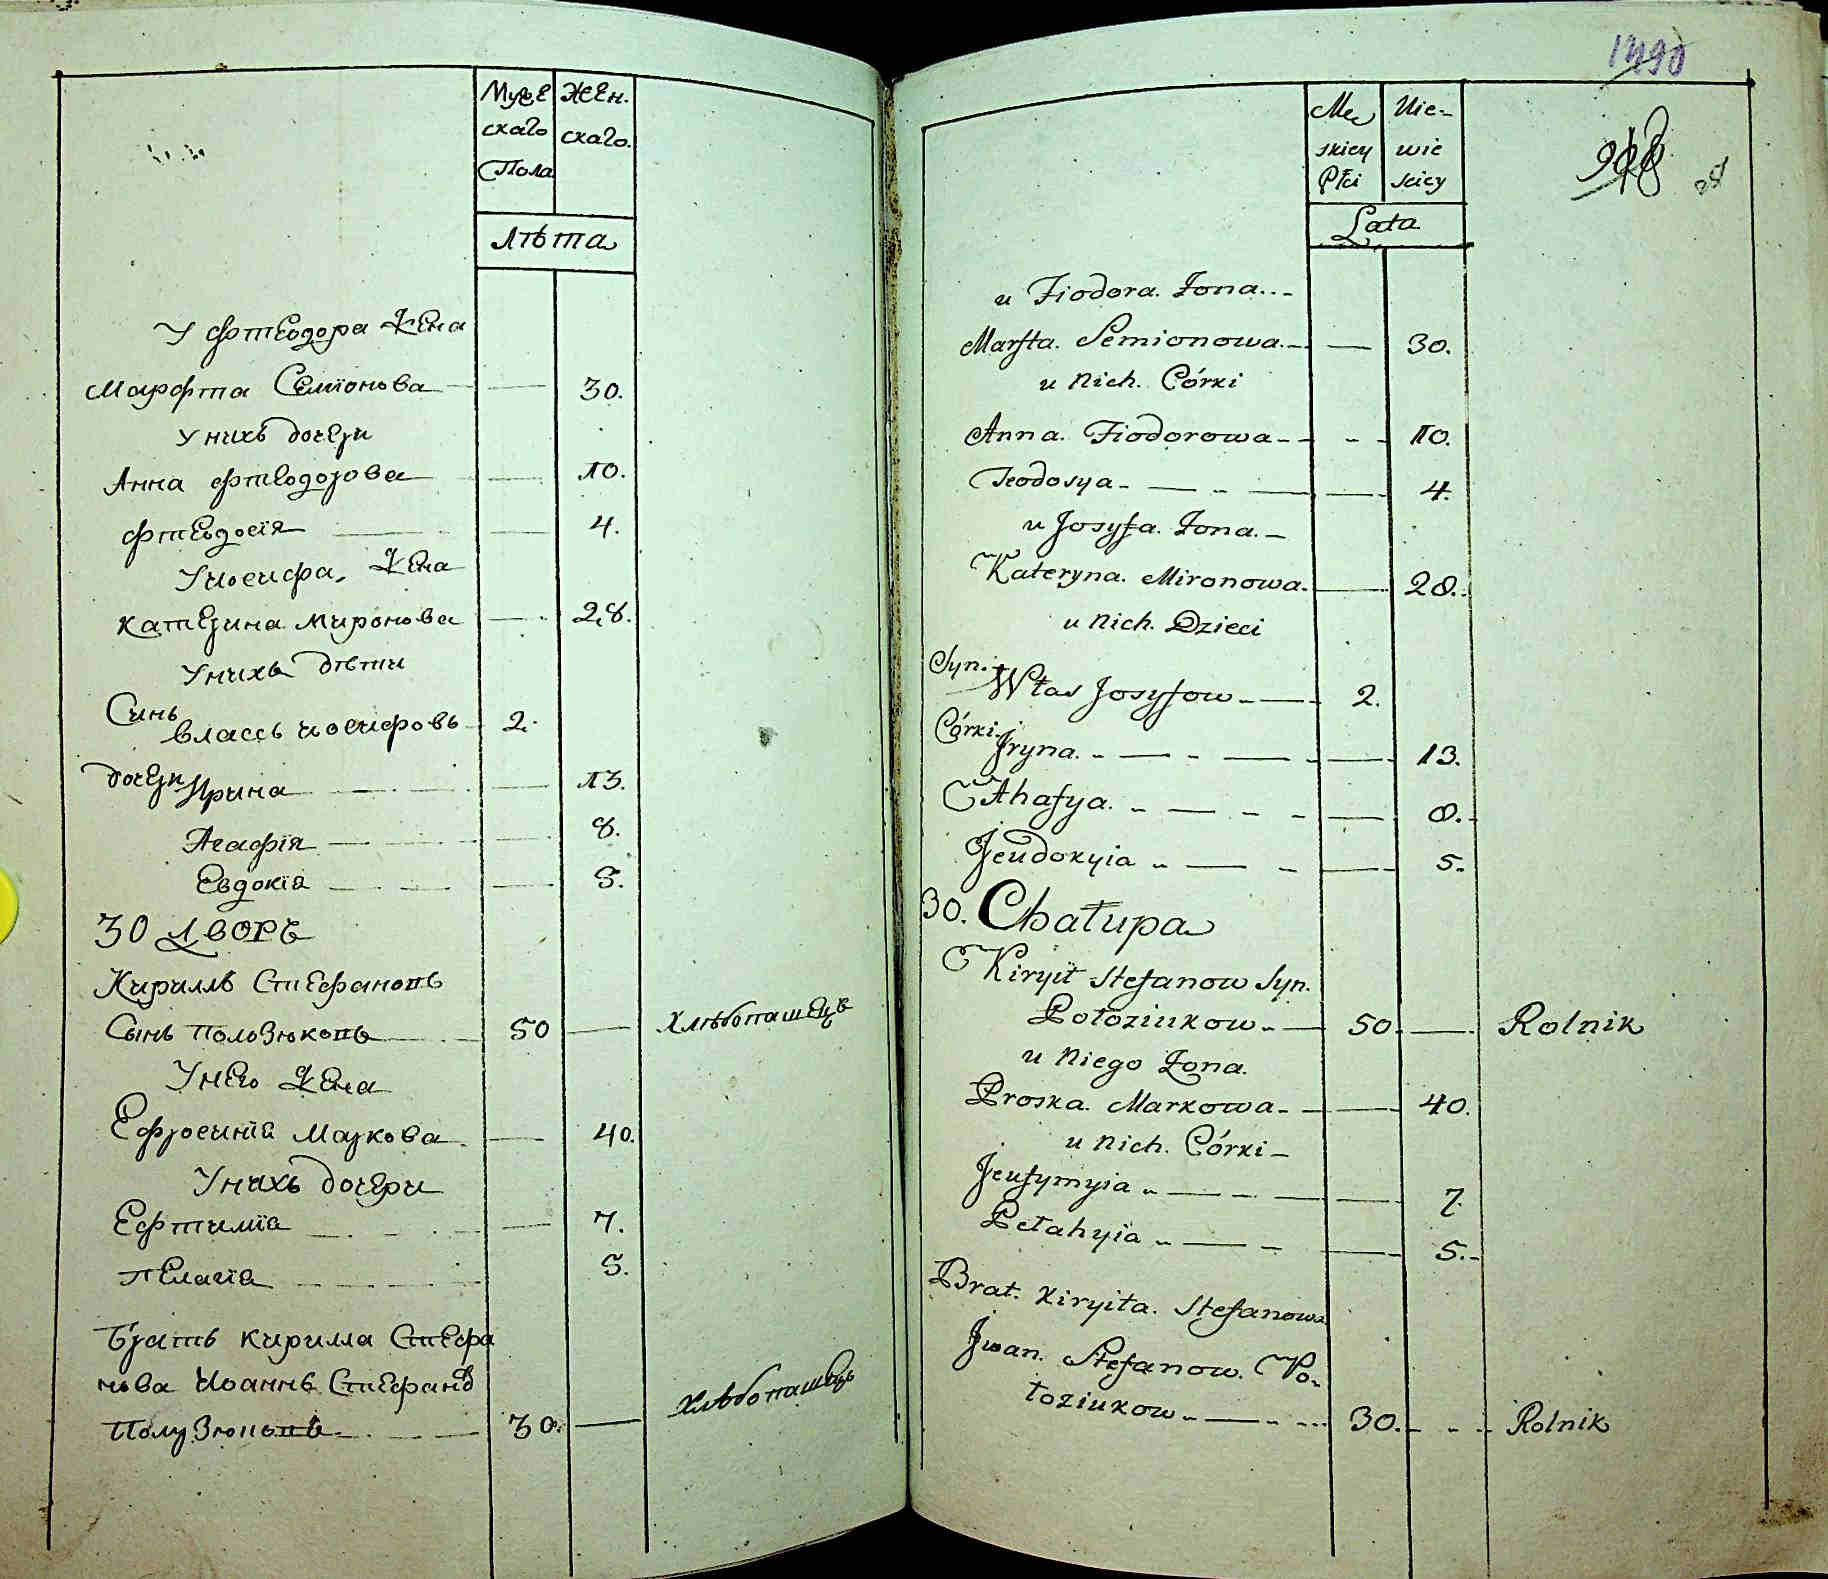 Муже Жен.
скаго скаго.
Пола
Лѣта
У Фтеодора Жена
Марфта Семіонова 30.
У нихъ дочери
Анна Фтеодорова 10.
Фтеодосія 4.
У иосифа, Жена
Катерина Миронова 28.
У нихъ дѣти
Синь
Власъ иосифовъ 2.
дочери Ирина 13.
Агафія 8.
Евдокіа 5.
30 Дворъ
Кириллъ Стиефановъ
Сынъ Полозюковъ 50 Хлѣбопашецъ
У него Жена
Ефросиніа Маркова 40.
У нихъ дочери
Ефтиміа 7.
Пелагіа 5.
Братъ Кирилла Стиефа
нова Иоаннъ Стиефановъ
30. Хлѣбопашецъ
1490
Męz Nie-
skiey wie
Płci sciey
Lata
u Fiodora. Żona..-
Marfta. Semionowa. 30.
u Nich. Córki
Anna. Fiodorowa 10.
Teodosya 4.
u Josyfa. Żona.
Kateryna. Mironowa. 28.
u Nich. Dzieci
Syn.
Włas Josyfow 2.
Córki.
Jryna. 13.
Ahafya. 8.
Jeudokyia 5.
30. Chałupa
Kiryił Stefanow Syn.
Połoziukow 50. Rolnik
u Niego Żona.
Proska. Markowa 40.
u Nich. Córki
Jeufymyia 7.
Pełahyia 5.
Brat. Kiryiła. Stefanowa
Jwan. Stefanow. Po-
łoziukow 30. Rolnik